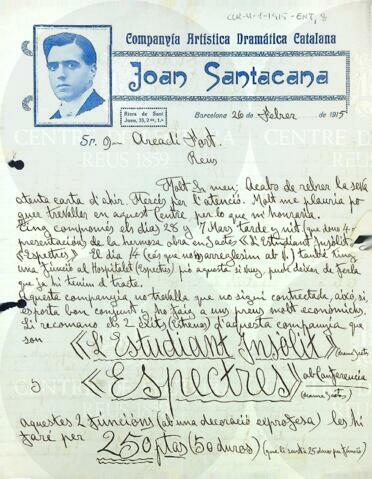 CLR-4-1-1915-ENT, 8
Companyía Artística Dramática Catalana
Joan Santacana
Riera de Sant
Joan, 35, 2on, 1.ª
Barcelona 26 de Febrer de 1915
Sr. Dn Arcadi Fort.
Reus
Molt Sr meu; Acabo de rebrer la seva
atenta carta d'ahir. Mercés per l'atenció. Molt me plauria po
guer travellar en aquest Centre per lo que m'honraria.
Tinc compromés els dias 28 y 7 Mars tarde y nit (que dono 4 re
presentacións de la hermosa obra en 3 actes "L'Estudiant Insolit"
"Espectres" El día 14 (cás que nos arreglesim ab ) també tinc
una funció al Hospitalet (Espectres) pió aquesta si vull, puc deixar de ferla
que ja hi tenim d'tracte.
Aquesta companyia no trevalla que no sigui contractada, aixó, si,
es porta bon conjunt y ho fais a uns preus molt económichs.
Li recomano els 2 éxits (Estrenos) d'aquesta companyia que
son
«L'Estudiant Insolit» actes
«Espectres» ab Conferencia
actes)
aquestes 2 funcións (ab una decoració exprofesa) les hi
faré per
250 ptas (50 duros) (que li surt á 25 duros per funció)